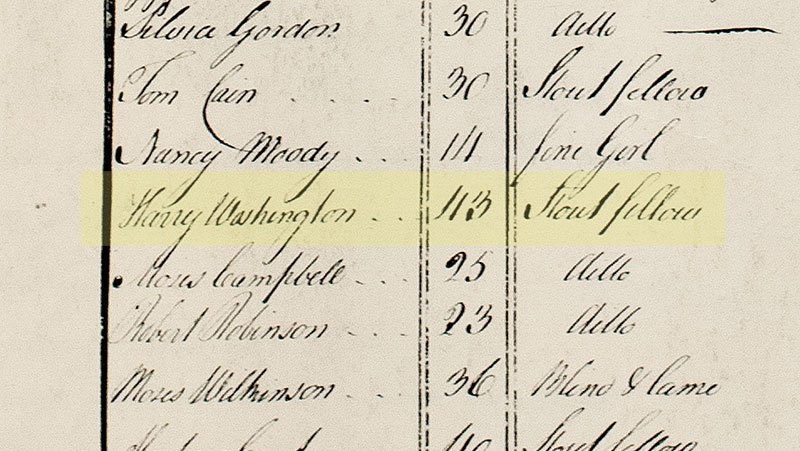 Silvia Gordon 30 ditto
Tom Cain 30 Stout fellow
Nancy Moody 14 fine Girl
Harry Washington 43 Stout fellow
Moses Campbell 25 ditto
Robert Robinson 23 ditto
Moses Wilkinson 36 Blind & lame
40 Stout fellow